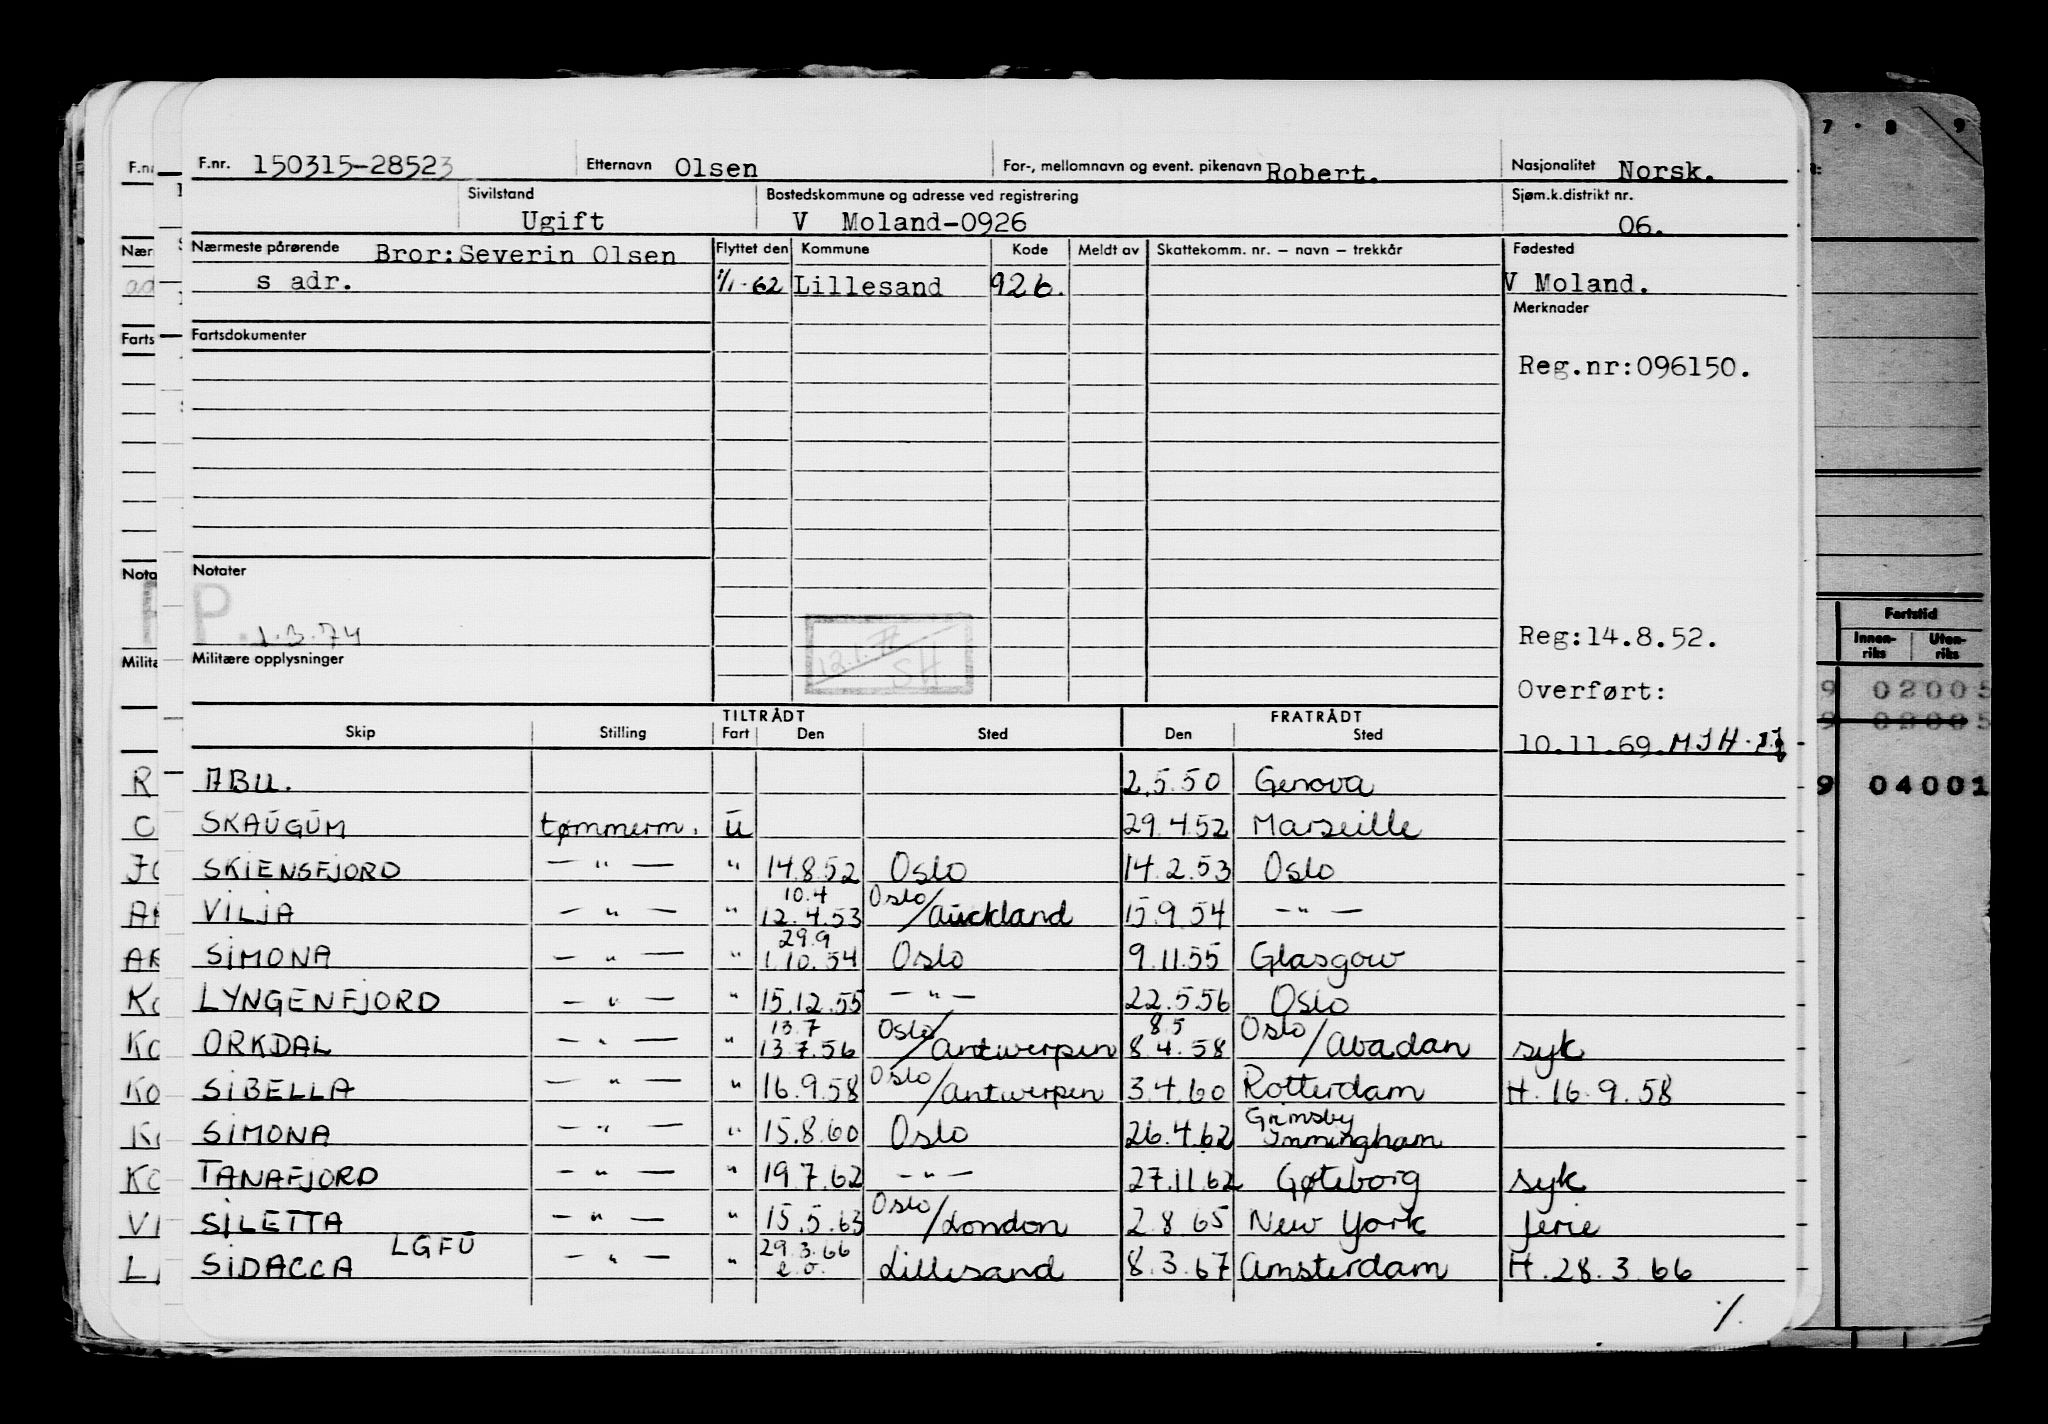 F.nr. 150315-28523 Etternavn Olsen For-, mellomnavn og event. pikenavn Robert. Nasjonalitet Norsk.
Sivilstand Ugift Bostedskommune og adresse ved registrering V Moland-0926 Sjøm.k.distrikt nr. 06.
Nærmeste pårørende Bror:Severin Olsen Flyttet den Kommune Kode Meldt av Skattekomm. nr. – navn – trekkår Fødested
s adr. 1/1-62 Lillesand 926. V Moland.
Merknader
Fartsdokumenter
Reg.nr:096150.
Notater
P.
1.3.74
12.1.77
SH
Reg:14.8.52.
Militære opplysninger
Overført:
10.11.69.
TILTRÅDT FRATRÅDT
Skip Stilling Fart Den Sted Den Sted
ABU. 2.5.50 Genova
SKAUGUM tømmerm. u 29.4.52 Marseille
SKIENSFJORD — " — " 14.8.52 Oslo 14.2.53 Oslo
VILJA — " — " 10.4 12.4.53 Oslo/Auckland 15.9.54 — " —
SIMONA — " — " 29.9 1.10.54 Oslo 9.11.55 Glasgow
LYNGENFJORD — " — " 15.12.55 — " — 22.5.56 Oslo
ORKDAL — " — " 13.7 13.7.56 Oslo/Antwerpen 8.5 8.4.58 Oslo/Abadan syk
SIBELLA — " — " 16.9.58 Oslo/Antwerpen 3.4.60 Rotterdam H.16.9.58
SIMONA — " — " 15.8.60 Oslo 26.4.62 Grimsby Immingham
TANAFJORD — " — " 19.7.62 — " — 27.11.62 Gøteborg syk
SILETTA — " — " 15.5.63 Oslo/London 2.8.65 New York ferie
SIDACCA LGFU — " — " 29.3.66 e.o. Lillesand 8.3.67 Amsterdam H.28.3.66
./.
7 · 8 9
Fartstid
Innen-riks Uten-riks
9 02005
9 04001